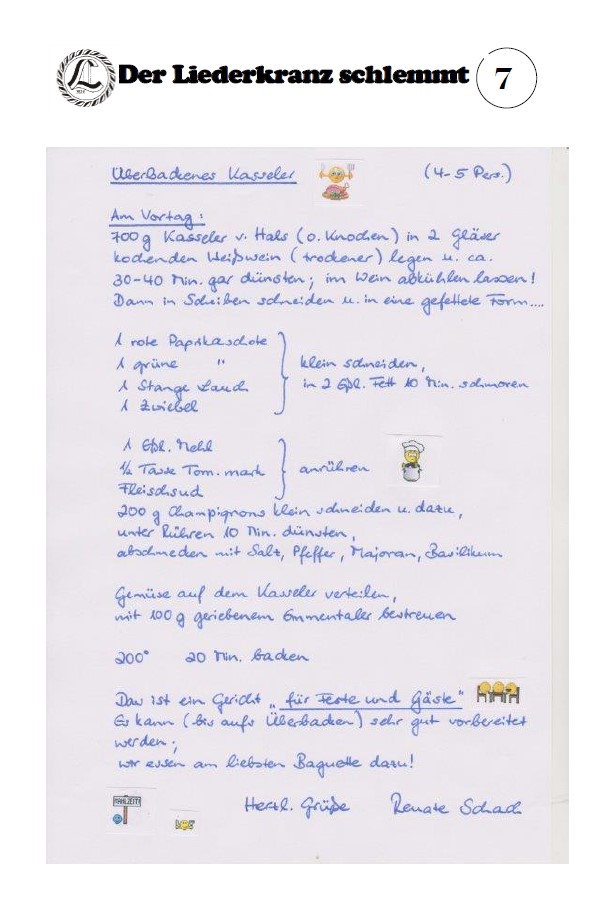 Der Liederkranz schlemmt 7
Überbackenes Kasseler (4-5 Pers.)
Am Vortag:
700g Kasseler v. Hals (o. Knochen) in 2 Gläser
kochenden Weißwein (trockener) legen u. ca.
30-40 Min. gar dünsten; im Wein abkühlen lassen!
Dann in Scheiben schneiden u. in eine gefettete Form....
1 rote Paprikaschote
1 grüne "
1 Stange Lauch
1 Zwiebel
klein schneiden,
in 2 Eßl. Fett 10 Min. schmoren
1 Eßl. Mehl
½ Tasse Tom. mark
Fleischsud
anrühren
200 g Champignons klein schneiden u. dazu,
unter Rühren 10 Min. dünsten,
abschmecken mit Salz, Pfeffer, Majoran, Basilikum
Gemüse auf dem Kasseler verteilen,
mit 100g geriebenem Emmentaler bestreuen
200° 20 Min. backen
Das ist ein Gericht "für Feste und Gäste"
Es kann (bis aufs Überbacken) sehr gut vorbereitet
werden;
wir essen am liebsten Baguette dazu!
MAHLZEIT!
Herzl. Grüße Renate Schach